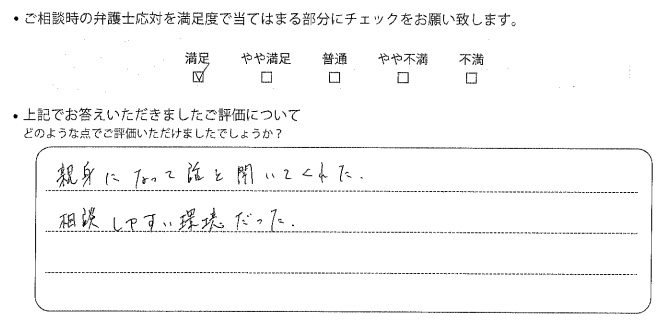 • ご相談時の弁護士応対を満足度で当てはまる部分にチェックをお願い致します。
満足 やや満足 普通 やや不満 不満
☑ ☐ ☐ ☐ ☐
• 上記でお答えいただきましたご評価について
どのような点でご評価いただけましたでしょうか？
親身になって話を聞いてくれた.
相談しやすい環境だった.